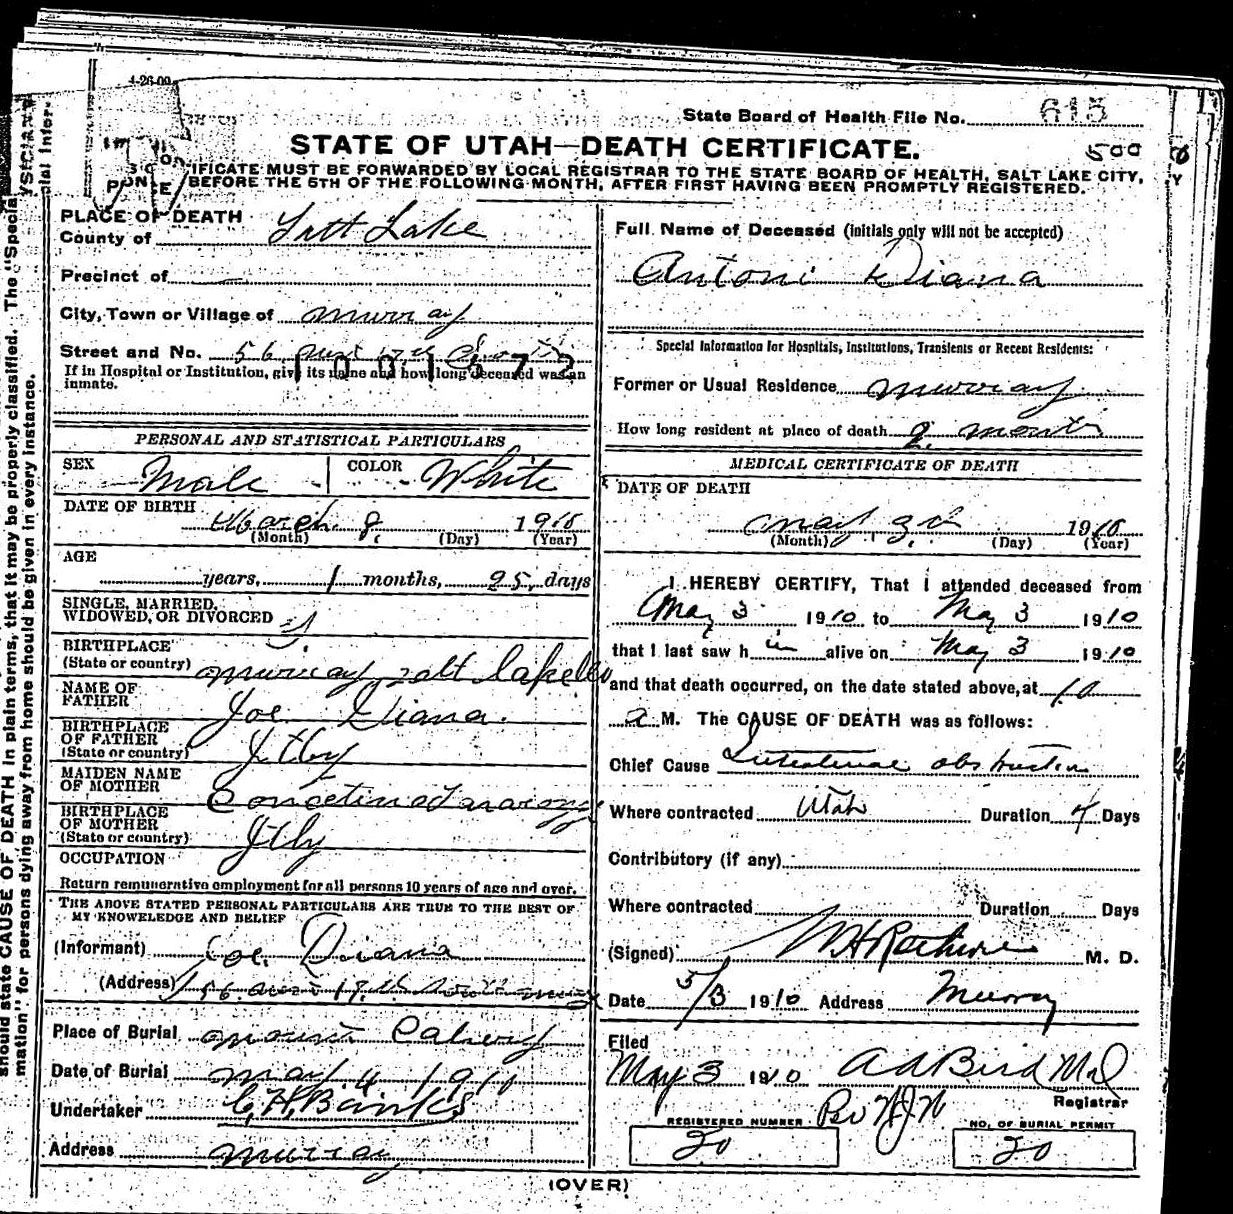 4-26-09
State Board of Health File No. 615
STATE OF UTAH—DEATH CERTIFICATE.
500
IFICATE MUST BE FORWARDED BY LOCAL REGISTRAR TO THE STATE BOARD OF HEALTH, SALT LAKE CITY,
BEFORE THE 5TH OF THE FOLLOWING MONTH, AFTER FIRST HAVING BEEN PROMPTLY REGISTERED.
PLACE OF DEATH
County of Salt Lake
Precinct of —
City, Town or Village of Murray
Street and No. 56
If in Hospital or Institution, give its name and how long deceased was an
inmate.
PERSONAL AND STATISTICAL PARTICULARS
SEX Male COLOR White
DATE OF BIRTH March 8 1910
(Month) (Day) (Year)
AGE
years, 1 months, 25 days
SINGLE, MARRIED,
WIDOWED, OR DIVORCED S
BIRTHPLACE
(State or country) Murray Salt Lake
NAME OF
FATHER Joe Diana.
BIRTHPLACE
OF FATHER
(State or country) Itly
MAIDEN NAME
OF MOTHER
BIRTHPLACE
OF MOTHER
(State or country) Itly
OCCUPATION
Return remunerative employment for all persons 10 years of age and over.
THE ABOVE STATED PERSONAL PARTICULARS ARE TRUE TO THE BEST OF
MY KNOWELEDGE AND BELIEF
(Informant) Joe Diana
(Address) 56
Place of Burial Mount Calvery
Date of Burial May 4 1910
Undertaker C. H. Banks
Address Murray
Full Name of Deceased (initials only will not be accepted)
Antoni Diana
Special Information for Hospitals, Institutions, Transients or Recent Residents:
Former or Usual Residence Murray
How long resident at place of death 2 months
MEDICAL CERTIFICATE OF DEATH
DATE OF DEATH
May 3rd 1910
(Month) (Day) (Year)
I HEREBY CERTIFY, That I attended deceased from
May 3 1910 to May 3 1910
that I last saw h im alive on May 3 1910
and that death occurred, on the date stated above, at 10
a M. The CAUSE OF DEATH was as follows:
Chief Cause Intestinal obstruction
Where contracted Utah Duration 4 Days
Contributory (if any)
Where contracted Duration Days
(Signed) M. D.
Date 5/3 1910 Address Murray
Filed
May 3 1910 A D Bird M d
Registrar
REGISTERED NUMBER
20
NO. OF BURIAL PERMIT
20
(OVER)
should state CAUSE OF DEATH in plain terms, that it may be properly classified. The "Special
mation" for persons dying away from home should be given in every instance.